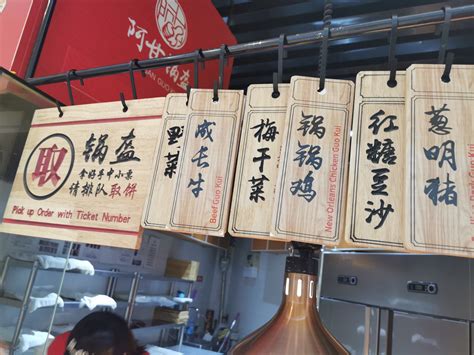 阿甘锅盔
取
锅盔
拿好手中小票
请排队取饼
Pick up Order with Ticket Number
成长牛
Beef Guo Kui
梅干菜
锅锅鸡
New Orleans Chicken Guo Kui
红糖豆沙
葱明猪
Guo Kui